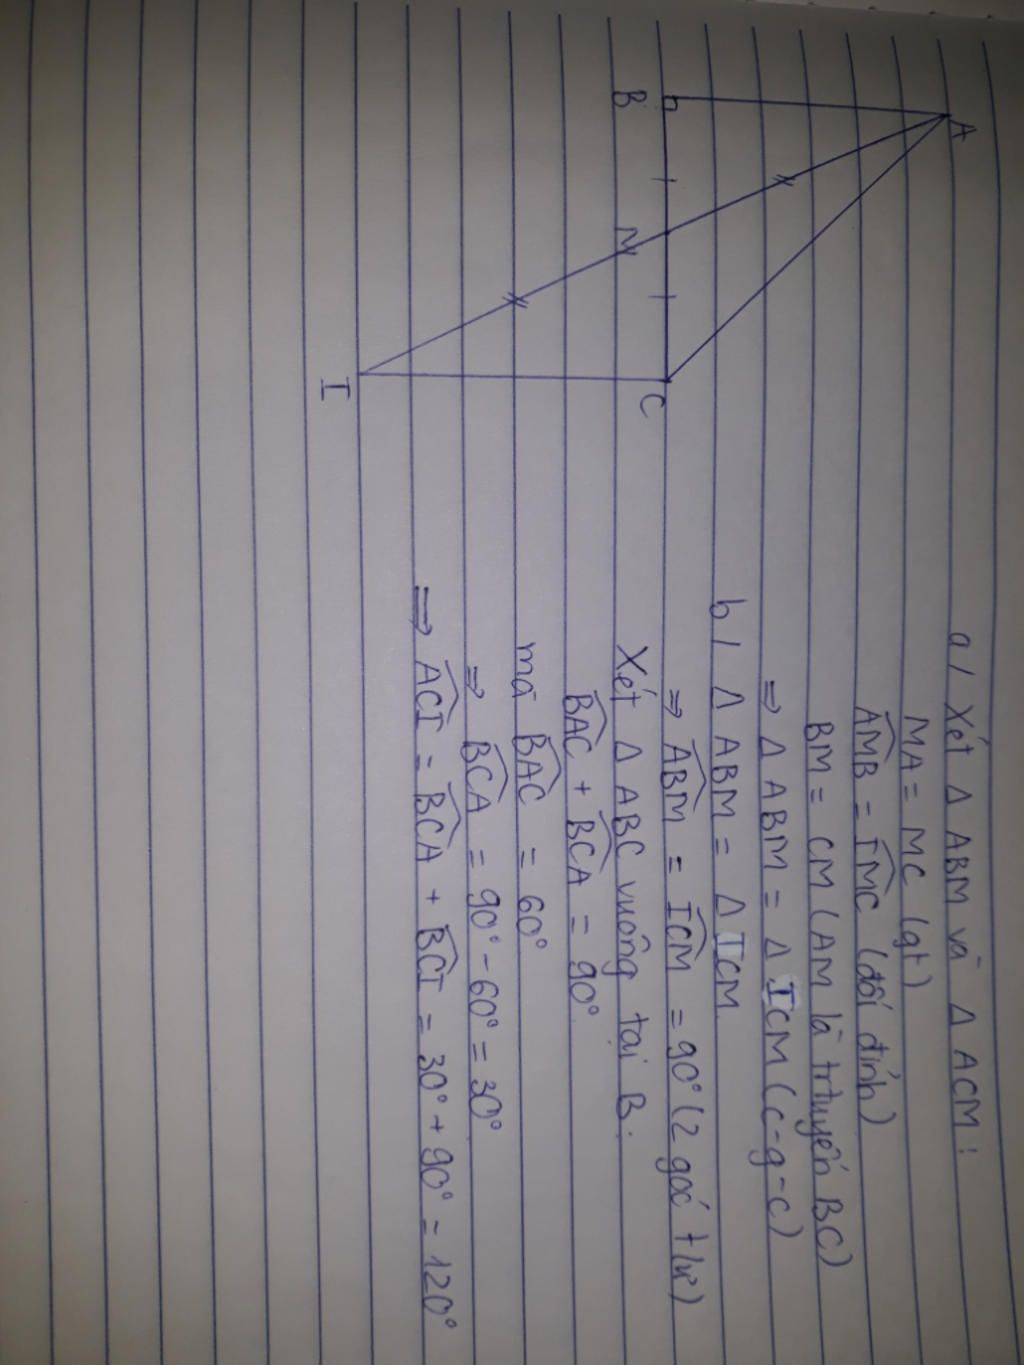 a / Xét Δ ABM và Δ ACM :
MA = MC (gt)
$\widehat{AMB}$ = $\widehat{IMC}$ (đối đỉnh)
BM = CM (AM là trtuyến BC)
⇒ Δ ABM = Δ ICM (c-g-c)
b / Δ ABM = Δ ICM
⇒ $\widehat{ABM}$ = $\widehat{ICM}$ = 90° (2 góc tlư)
Xét Δ ABC vuông tại B.
$\widehat{BAC}$ + $\widehat{BCA}$ = 90°
mà $\widehat{BAC}$ = 60°
⇒ $\widehat{BCA}$ = 90° - 60° = 30°
⇒ $\widehat{ACI}$ = $\widehat{BCA}$ + $\widehat{BCI}$ = 30° + 90° = 120°
A
B
M
C
I